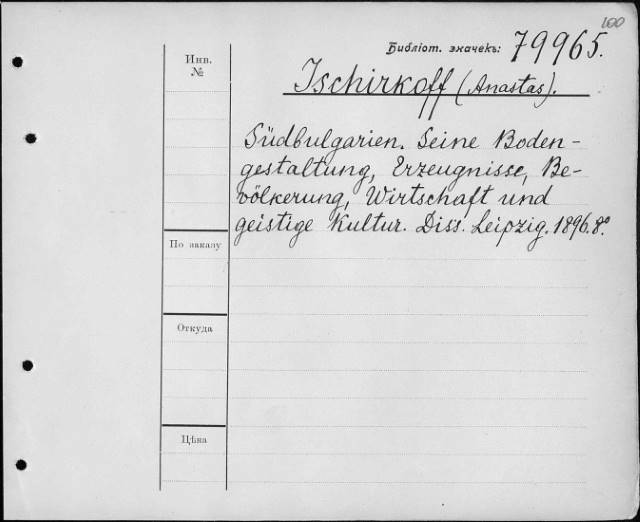 100
Библіот. значекъ: 79965.
Инв.
№
Ischirkoff (Anastas).
Südbulgarien. Seine Boden-
gestaltung, Erzeugnisse, Be-
völkerung, Wirtschaft und
geistige Kultur. Diss. Leipzig. 1896. 8º
По заказу
Откуда
Цѣна